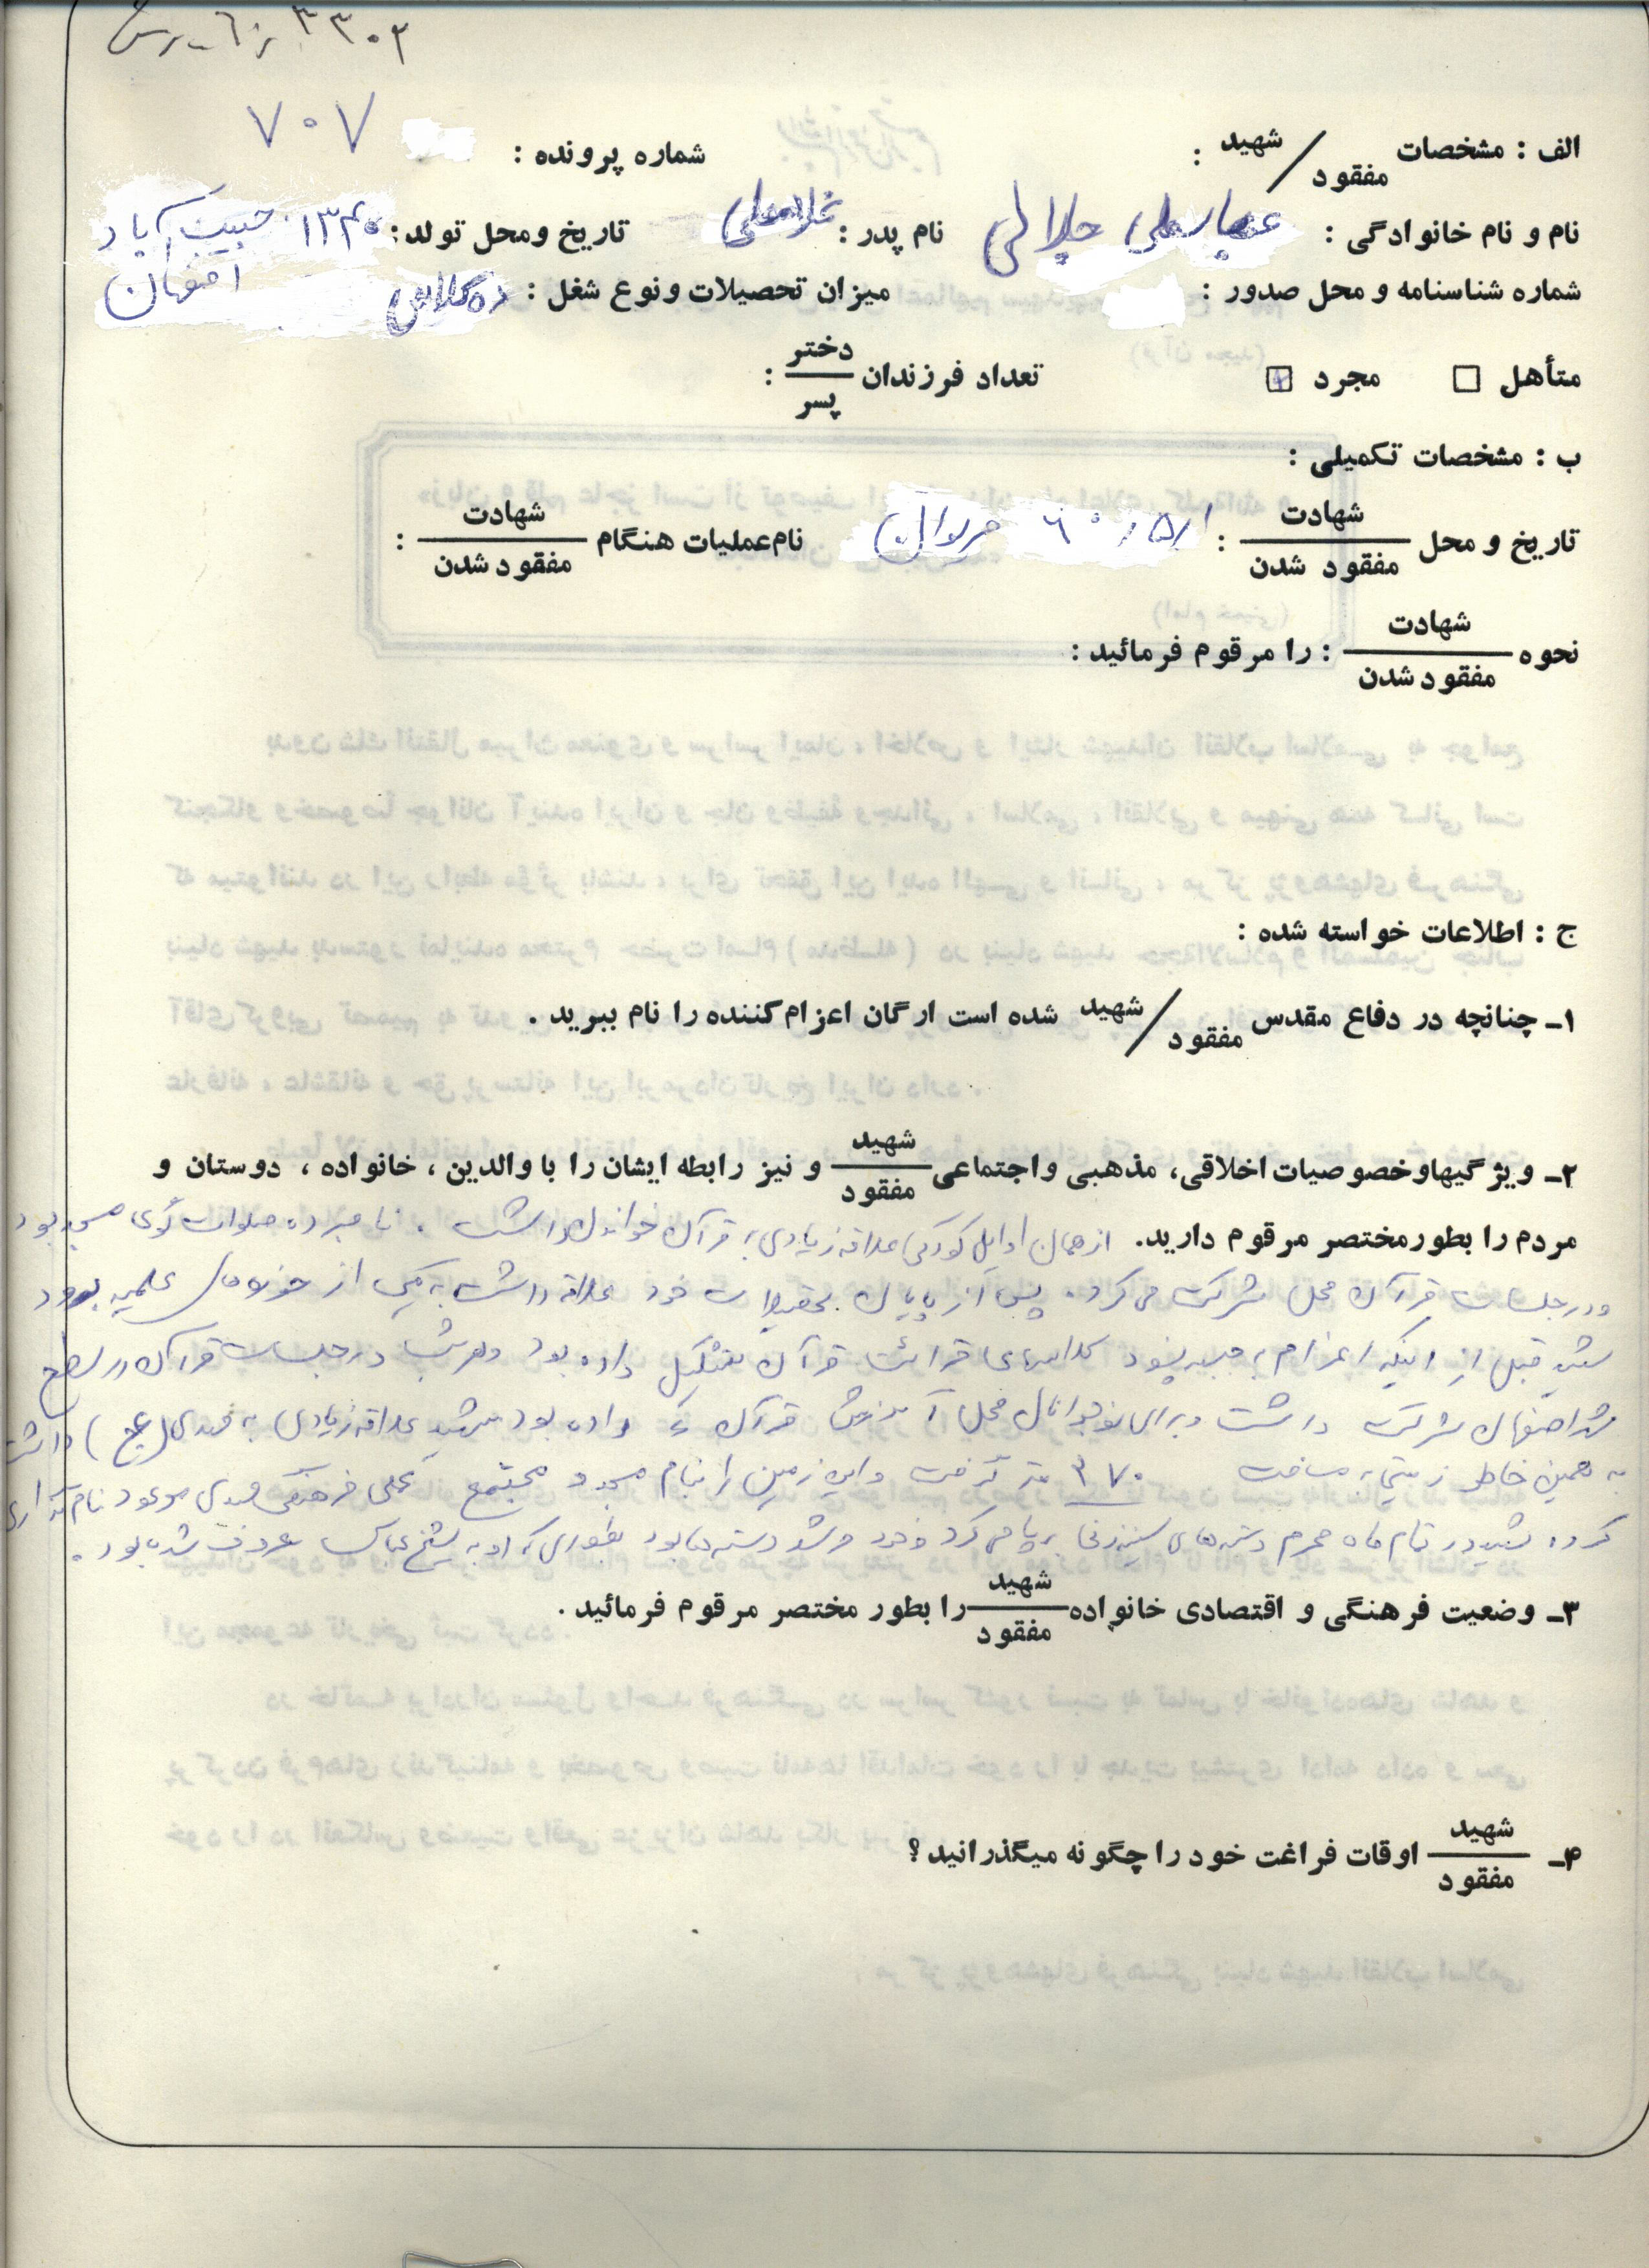 ۳۳۰۲
۷۰۷
الف : مشخصات شهید / مفقود : شماره پرونده :
نام و نام خانوادگی : عباسعلی جلالی نام پدر : غلامعلی تاریخ ومحل تولد : ۱۳۴۰ حبیب آباد
اصفهان
شماره شناسنامه و محل صدور : میزان تحصیلات ونوع شغل :
متأهل □ مجرد ☒ تعداد فرزندان دختر / پسر :
ب : مشخصات تکمیلی :
تاریخ و محل شهادت / مفقود شدن : ۶۰/۵/۱ مریوان نام عملیات هنگام شهادت / مفقود شدن :
نحوه شهادت / مفقود شدن : را مرقوم فرمائید :
ج : اطلاعات خواسته شده :
۱ـ چنانچه در دفاع مقدس شهید / مفقود شده است ارگان اعزام کننده را نام ببرید .
۲ـ ویژگیهاوخصوصیات اخلاقی، مذهبی واجتماعی شهید / مفقود و نیز رابطه ایشان را با والدین ، خانواده ، دوستان و
مردم را بطورمختصر مرقوم دارید. از همان اوایل کودکی علاقه زیادی به قرآن خواندن داشت . نامبرده صلوات گوی مسجد بود
و در جلسات قرآن محل شرکت می کرد. پس از پایان تحصیلات خود علاقه داشت به یکی از حوزه های علمیه برود
شهید قبل از اینکه اعزام به جبهه شود کلاسهای قرائت قرآن تشکیل داده بود و هر شب در جلسات قرآن در سطح
شهر اصفهان شرکت داشت و برای نوجوانان محل آموزش قرآن داده بود شهید علاقه زیادی به مهدی (عج) داشت
به همین خاطر زمینی به مساحت ۳۷۰ متر گرفت و این زمین را بنام مسجد و مجتمع علمی فرهنگی مهدی موعود نام گذاری
کرد. شهید در تمام ماه محرم دسته های سینه زنی برپا می کرد و خود مرشد دسته ها بود بطوری که او به شیخ عباس معروف شده بود .
۳ـ وضعیت فرهنگی و اقتصادی خانواده شهید / مفقود را بطور مختصر مرقوم فرمائید .
۴ـ شهید / مفقود اوقات فراغت خود را چگونه میگذرانید ؟